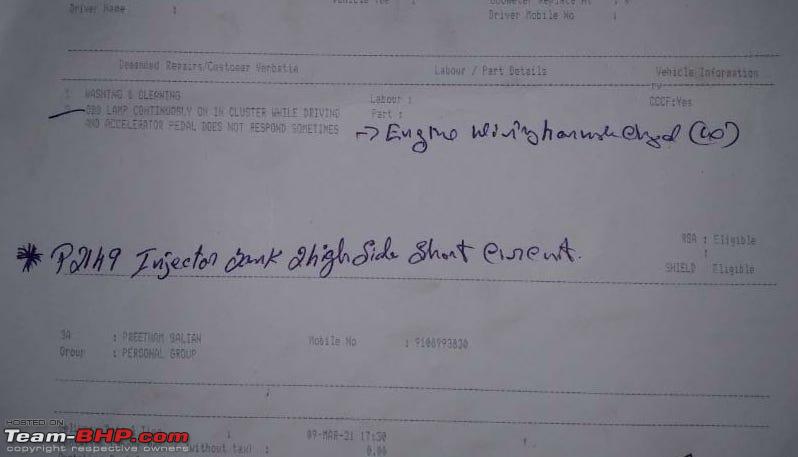 Driver Name :
Driver Mobile No :
Demanded Repairs/Customer Verbatim Labour / Part Details Vehicle Information
1 WASHING & CLEANING
Labour :
CCCF:Yes
OBD LAMP CONTINUOSLY ON IN CLUSTER WHILE DRIVING
Part :
AND ACCELERATOR PEDAL DOES NOT RESPOND SOMETIMES
→ Engine wiring harness
* P2149 Injector bank 2 high side short circuit.
RSA : Eligible
:
SHIELD Eligible
SA : PREETHAM SALIAN Mobile No : 9108993830
Group : PERSONAL GROUP
09-MAR-21 17:30
without tax) : 0.00
HOSTED ON
Team-BHP.com
copyright respective owners